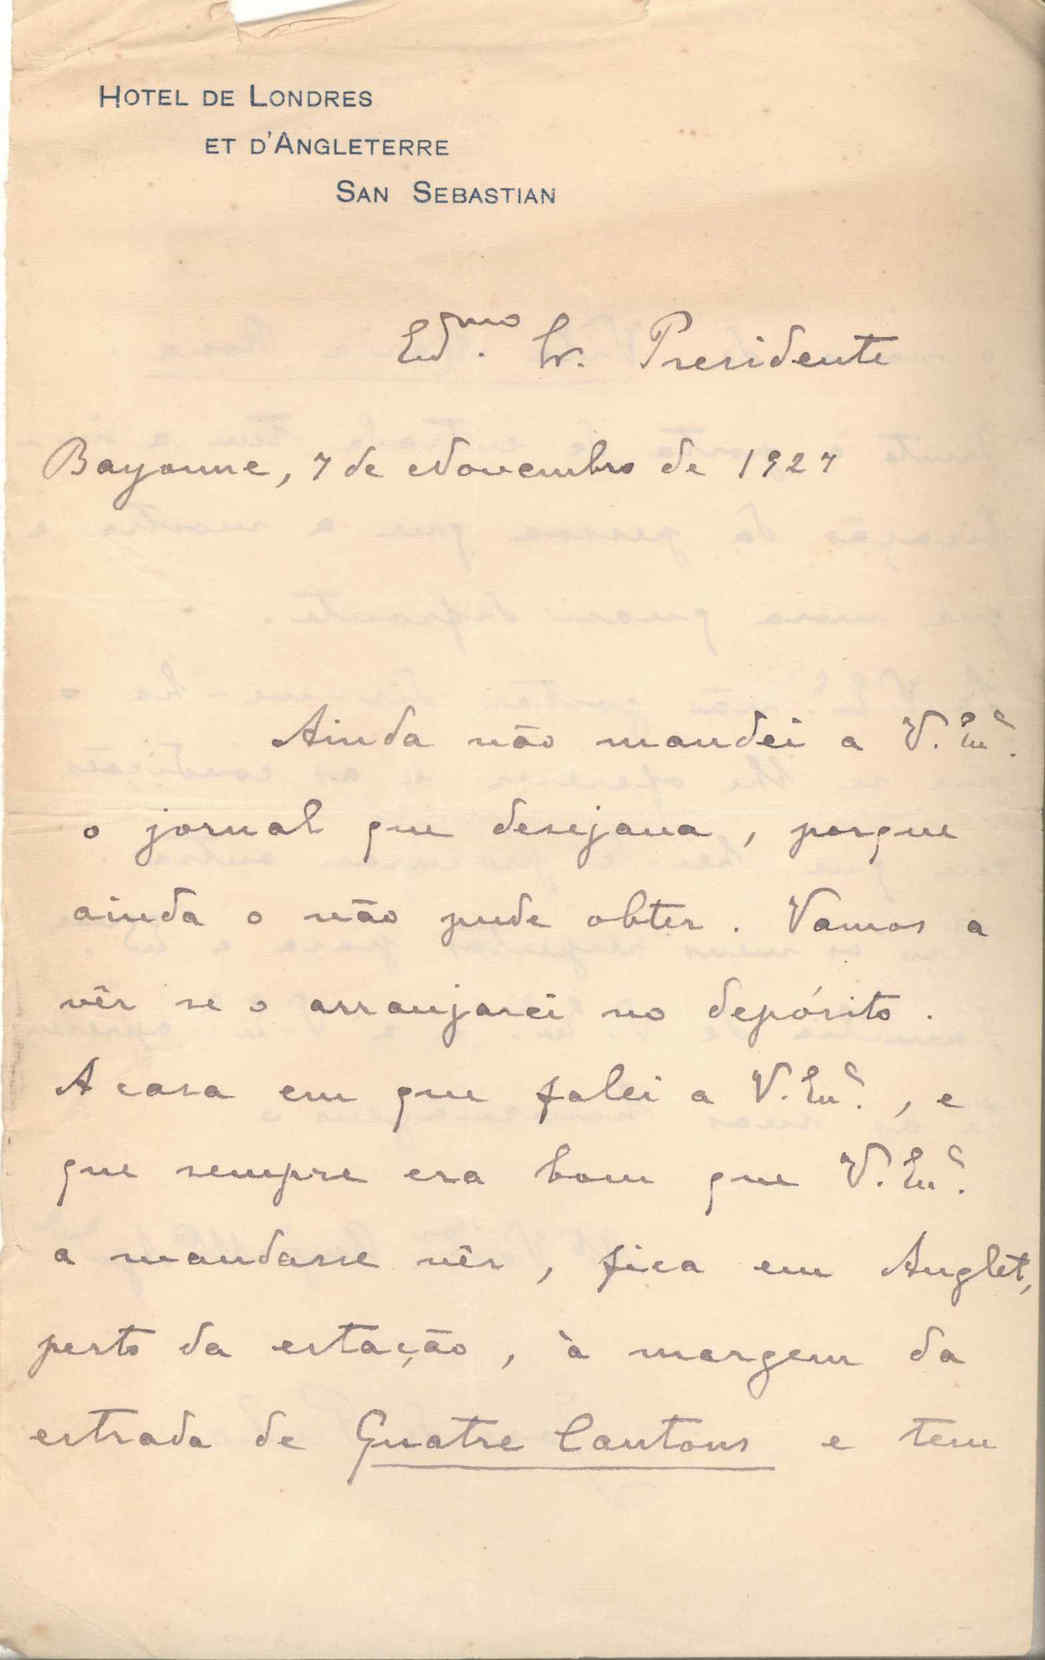 HOTEL DE LONDRES
ET D'ANGLETERRE
SAN SEBASTIAN
Exmo. Sr. Presidente
Bayonne, 7 de Novembro de 1927
Ainda não mandei a V. Exª.
o jornal que desejava, porque
ainda o não pude obter. Vamos a
vêr se o arranjarei no depósito.
A casa em que falei a V. Exª., e
que sempre era bom que V. Exª.
a mandasse vêr, fica em Anglet,
perto da estação, à margem da
estrada de Quatre Cantons e tem